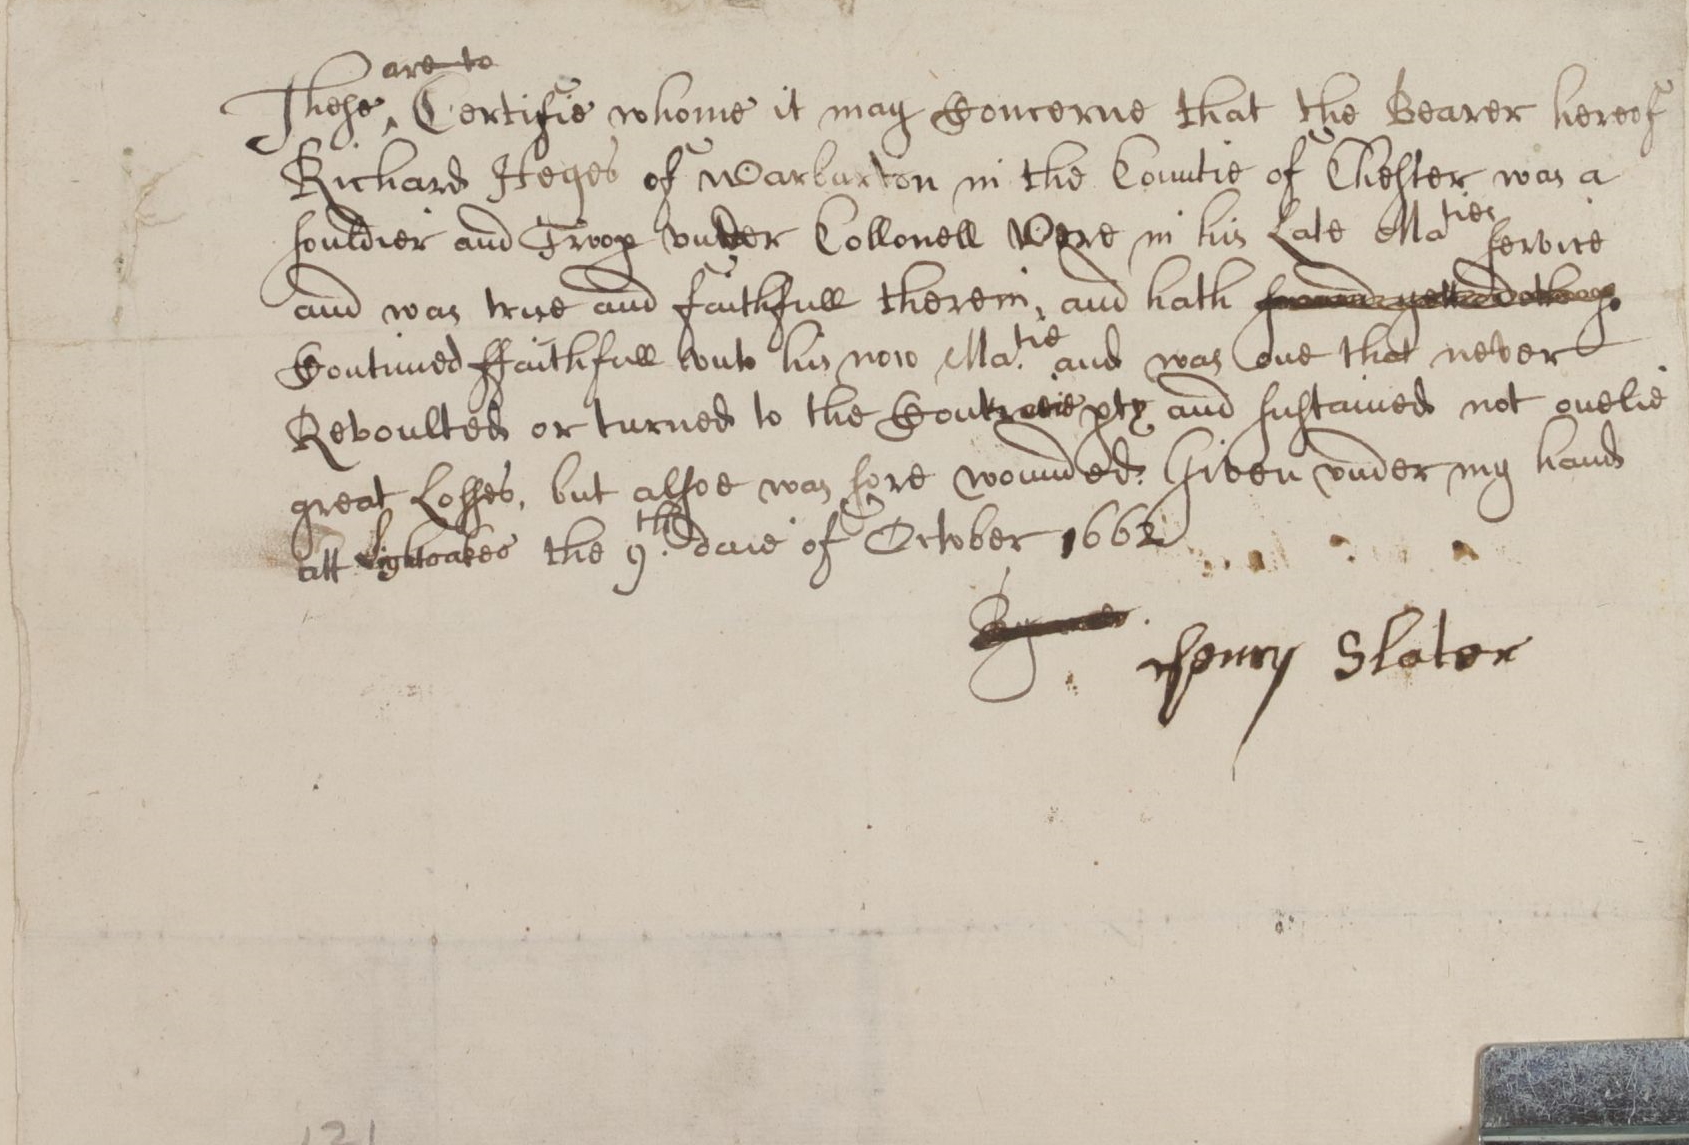 These ^are to^ Certifie whome it may Concerne that the Bearer hereof
Richard Heyes of Warburton in the Countie of Chester was a
souldier and Troop vnder Collonell Were in his Late Ma^ties^ service
and was true and faithfull therein, and hath
Continued ffaithfull vnto his now Ma^tie^. and was one that never
Revoulted or turned to the Contrarie pty and sustained not onelie
great Losses, but alsoe was sore wounded. Given vnder my hand
att Lightoakes the 9^th^. daie of October 1662
Henry Slater
121